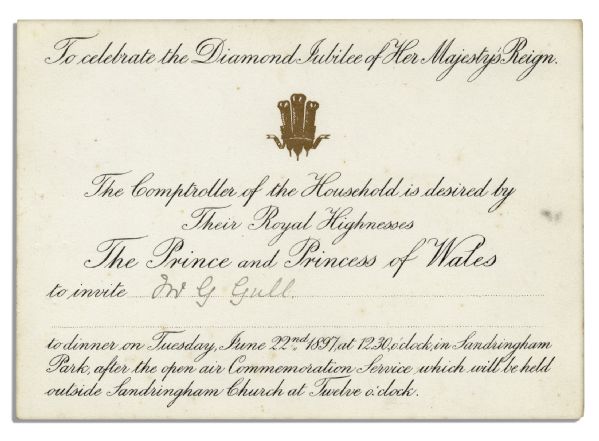 To celebrate the Diamond Jubilee of Her Majesty's Reign.
The Comptroller of the Household is desired by
Their Royal Highnesses
The Prince and Princess of Wales
to invite G Gull
to dinner on Tuesday, June 22nd. 1897, at 12.30, o'clock, in Sandringham
Park, after the open air Commemoration Service, which will be held
outside Sandringham Church at Twelve o'clock.